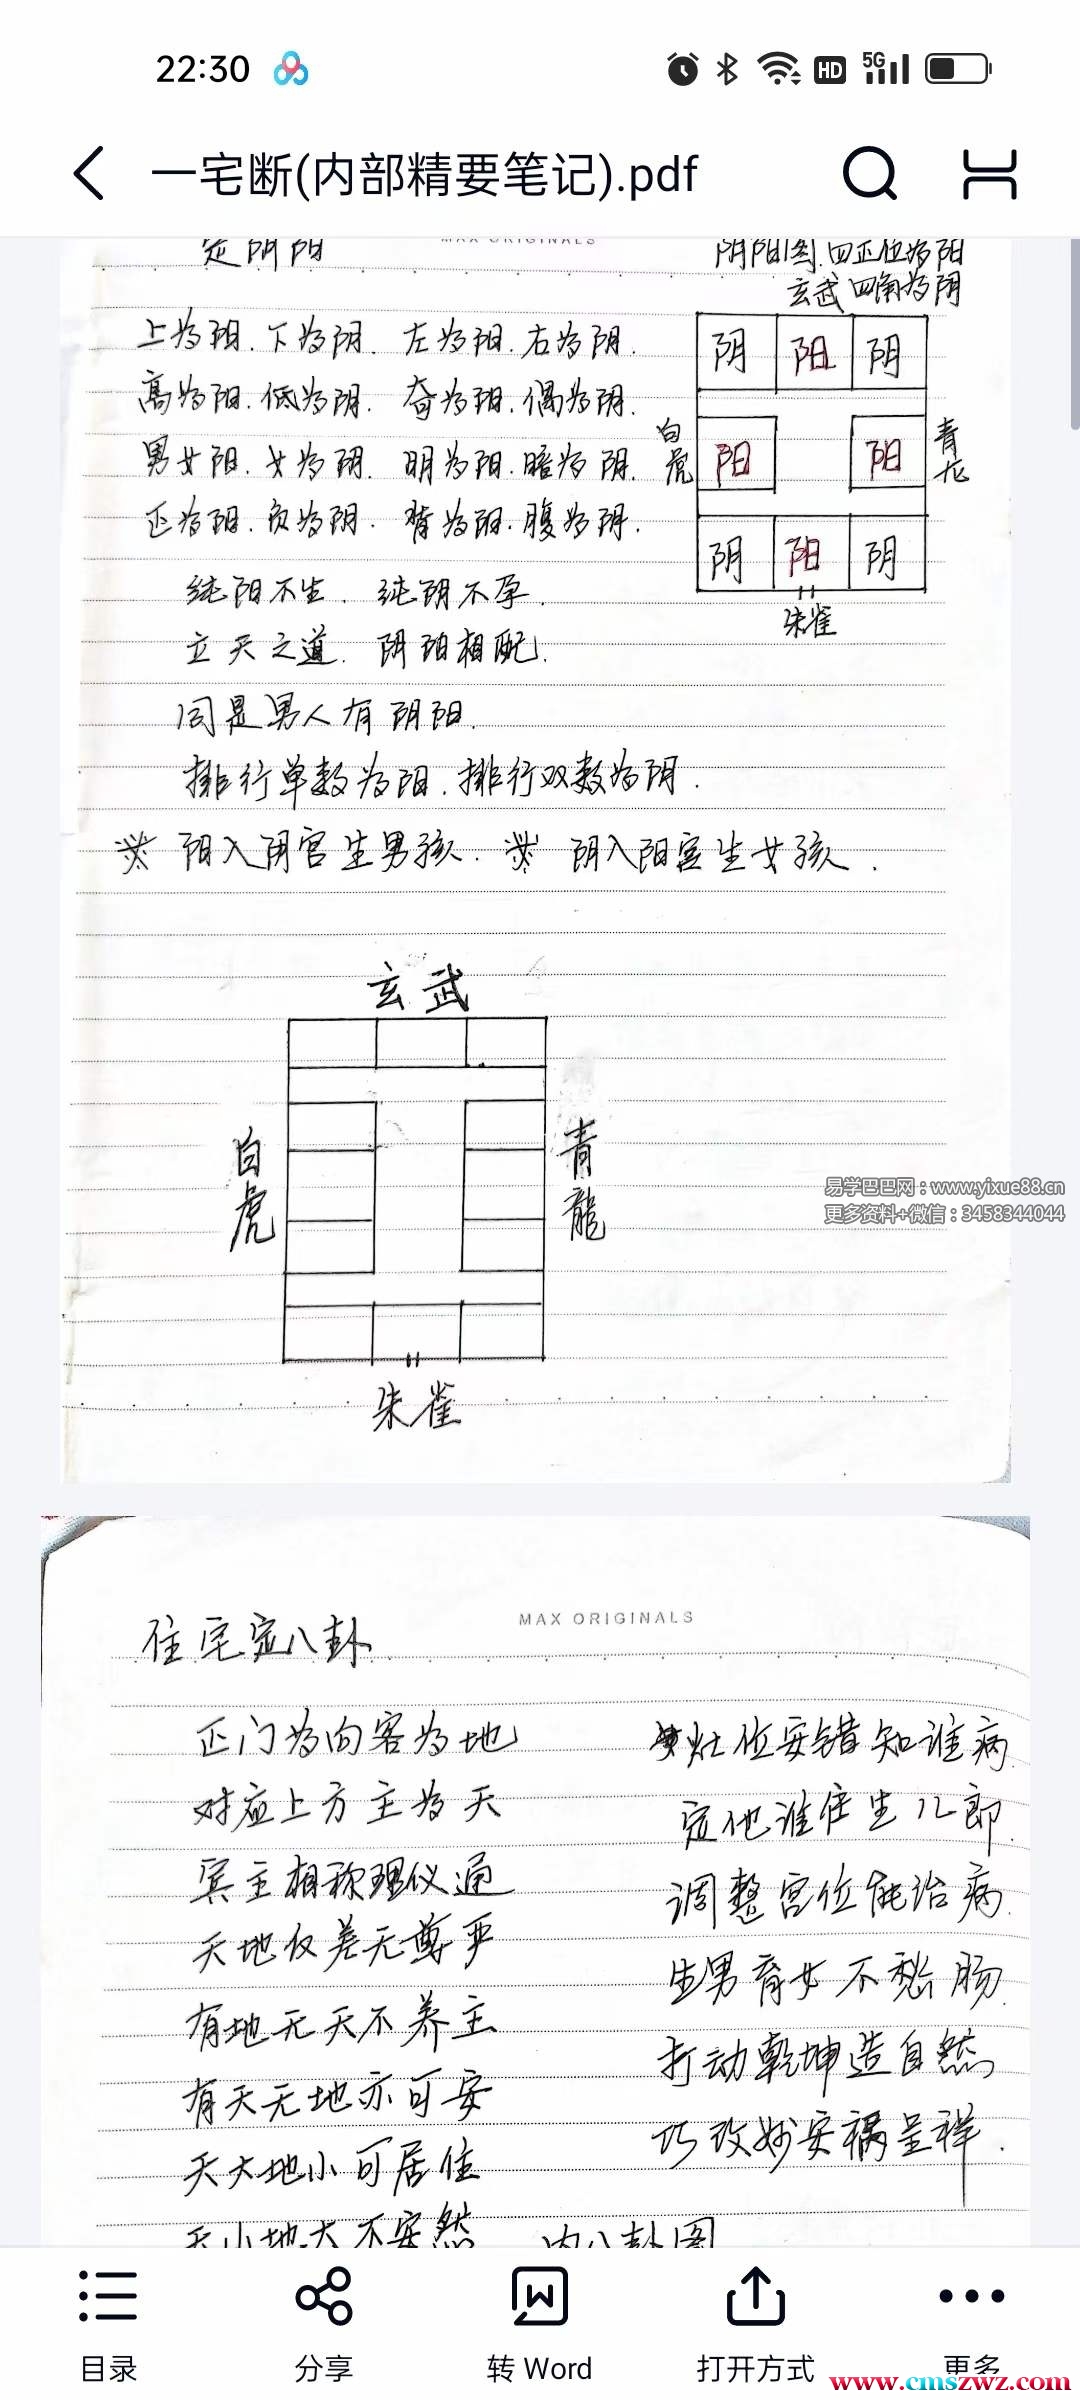 22:30
HD 5G
一宅断(内部精要笔记).pdf
定阴阳
MAX ORIGINALS
阴阳图.四正位为阳
玄武四角为阴
上为阳.下为阴.左为阳.右为阴.
高为阳.低为阴.奇为阳.偶为阴.
男女阳.女为阴.明为阳.暗为阴.
正为阳.负为阴.背为阳.腹为阴.
纯阳不生.纯阴不孕.
立天之道.阴阳相配.
同是男人有阴阳.
排行单数为阳.排行双数为阴.
阳入阴宫生男孩.阴入阳宫生女孩.
阴 阳 阴
白虎 阳 阳 青龙
阴 阳 阴
朱雀
玄武
白虎
青龍
朱雀
易学巴巴网：www.yixue88.cn
更多资料+微信：3458344044
MAX ORIGINALS
住宅定八卦
正门为向客为地
对应上方主为天
宾主相称理仪通
天地仪差无尊严
有地无天不养主
有天无地亦可安
天大地小可居住
天小地大不安然
灶位安错知谁病
定他谁住生儿郎.
调整宫位能治病.
生男育女不愁肠.
打动乾坤造自然
巧改妙安祸呈祥.
内八卦图
目录
分享
转 Word
打开方式
更多
www.cmszwz.com